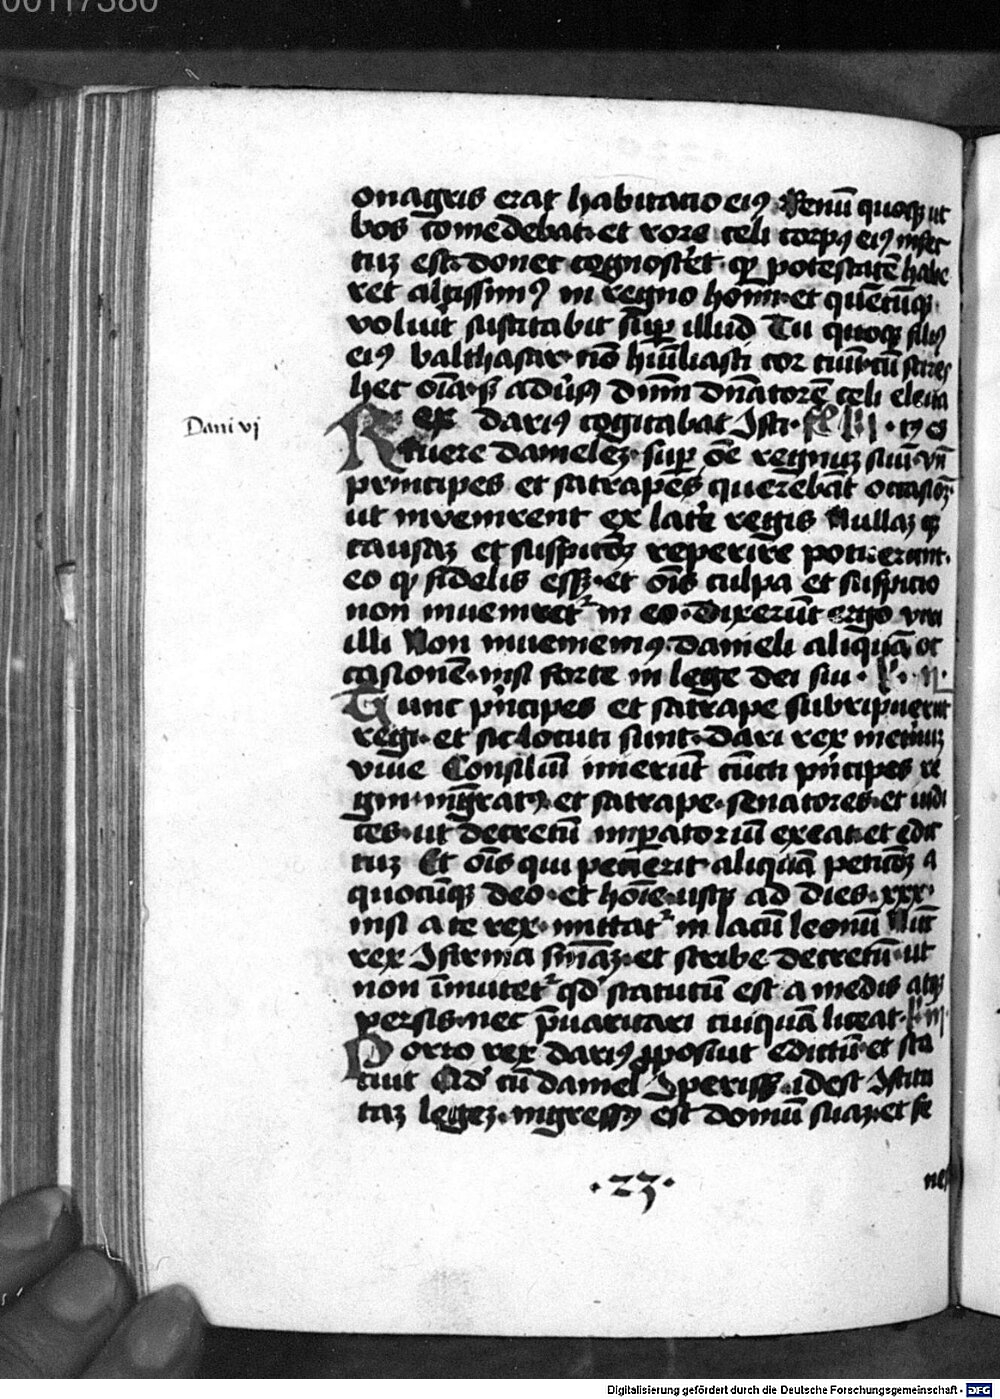 00117380
onagris erat habitatio eiꝰ Fenū quoqꝫ ut
bos comedebat· et rore celi corpꝰ eiꝰ infec
tuꝫ est· donec cognosc̄et· qꝫ potestatē habe
ret altissimꝰ in regno homīū· et quēcūqꝫ·
voluit suscitabit sup̄ illud Tu quoqꝫ filiꝰ
eiꝰ balthasar· nō humiliasti cor tuū· cū scires
hec oīa· sꝫ adūsꝰ dnm dn̄atorē celi eleua
Dani vj
Rex dariꝰ cogitabat Isti·
tuere danieleꝫ· sup̄ ōe regnuꝫ suū· vn̄
principes et satrapes querebāt occasioꝫ
ut invenirent ex late̾ regis Nullaꝫ qꝫ
causaꝫ et suspicioꝫ reperire potuerunt·
eo qꝫ fidelis esset· et oīs culpa et suspicio
non inueniret᷑ in eo· Dixerūt ergo viri
illi Non inueniemꝰ danieli aliquā oc
casionē· nisi forte in lege dei sui·
Tunc p̄ncipes et satrape subripuerūt
regi· et sic locuti sunt· dari rex in eternuꝫ
viue Consiliū inierūt cūcti p̄ncipes re
gni· mgr̄atꝰ· et satrape· senatores· et iudi
ces· ut decretū imp̄atoriū exeat· et edic
tuꝫ Et oīs qui petierit aliquā peticōꝫ a
quocūqꝫ deo· et hoīe· usqꝫ ad dies· xxx·
nisi a te rex· mittat᷑ in lacū leonū Nūc
rex Isirma sn̄iaꝫ· et scribe decretū· ut
non īmutet᷑ qd̓ statutū est a medis atqꝫ
persis· nec p̄uaricari cuiquā liceat·
Porto rex dariꝰ ꝓposuit edictū· et sta
tuit Qd̓ cū daniel Iperisset· idest Istitu
taꝫ legeꝫ· ingressꝰ est domū suaꝫ· et fe
·23·
nes
Digitalisierung gefördert durch die Deutsche Forschungsgemeinschaft - DFG